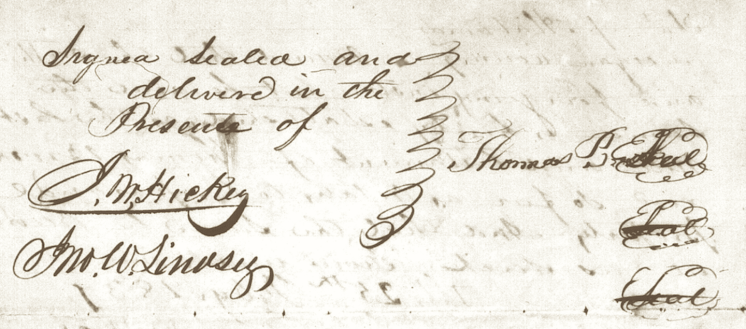 Signed sealed and
delivered in the
Presents of
J. W. Hickey
Jno. W Lindsey
Thomas Seal
Seal
Seal